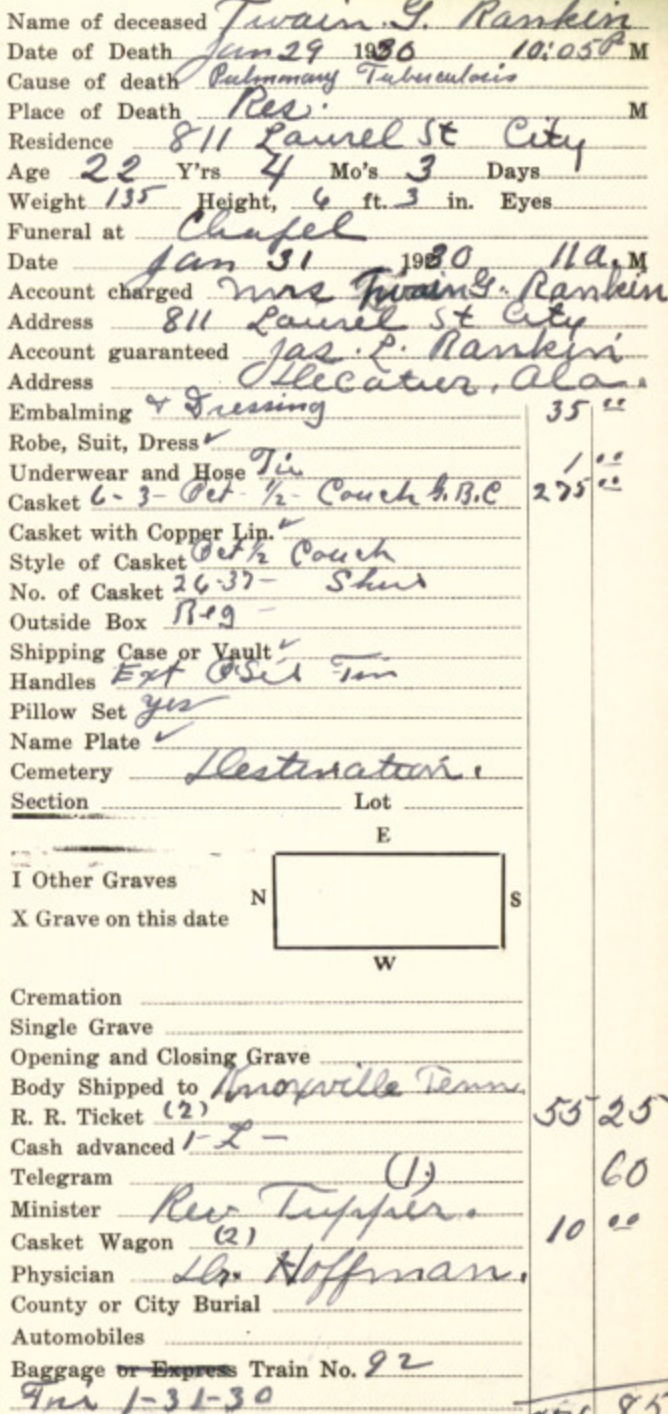 Name of deceased Twain. G. Rankin
Date of Death Jan 29 1930 10:05 P M
Cause of death Pulmonary Tuberculosis
Place of Death Res. M
Residence 811 Laurel St City
Age 22 Y'rs 4 Mo's 3 Days
Weight 135 Height, 6 ft. 3 in. Eyes
Funeral at Chapel
Date Jan 31 1930 11 a. M
Account charged Mrs Twain G. Rankin
Address 811 Laurel St City
Account guaranteed Jas. L. Rankin
Address Decatur, Ala.
Embalming & Dressing 35 00
Robe, Suit, Dress ✓
Underwear and Hose Tie 1 00
Casket 6-3- Oct 1/2 Couch G.B.C 275 00
Casket with Copper Lin. ✓
Style of Casket Oct 1/2 Couch
No. of Casket 26-37-
Outside Box Reg -
Shipping Case or Vault ✓
Handles Ext
Pillow Set yes
Name Plate ✓
Cemetery Destination.
Section Lot
E
I Other Graves
N S
X Grave on this date
W
Cremation
Single Grave
Opening and Closing Grave
Body Shipped to Knoxville Tenn.
R. R. Ticket (2) 55 25
Cash advanced
Telegram (1) 60
Minister Rev Tupper.
Casket Wagon (2) 10 00
Physician Dr. Hoffman.
County or City Burial
Automobiles
Baggage or Express Train No. 92
1-31-30 85